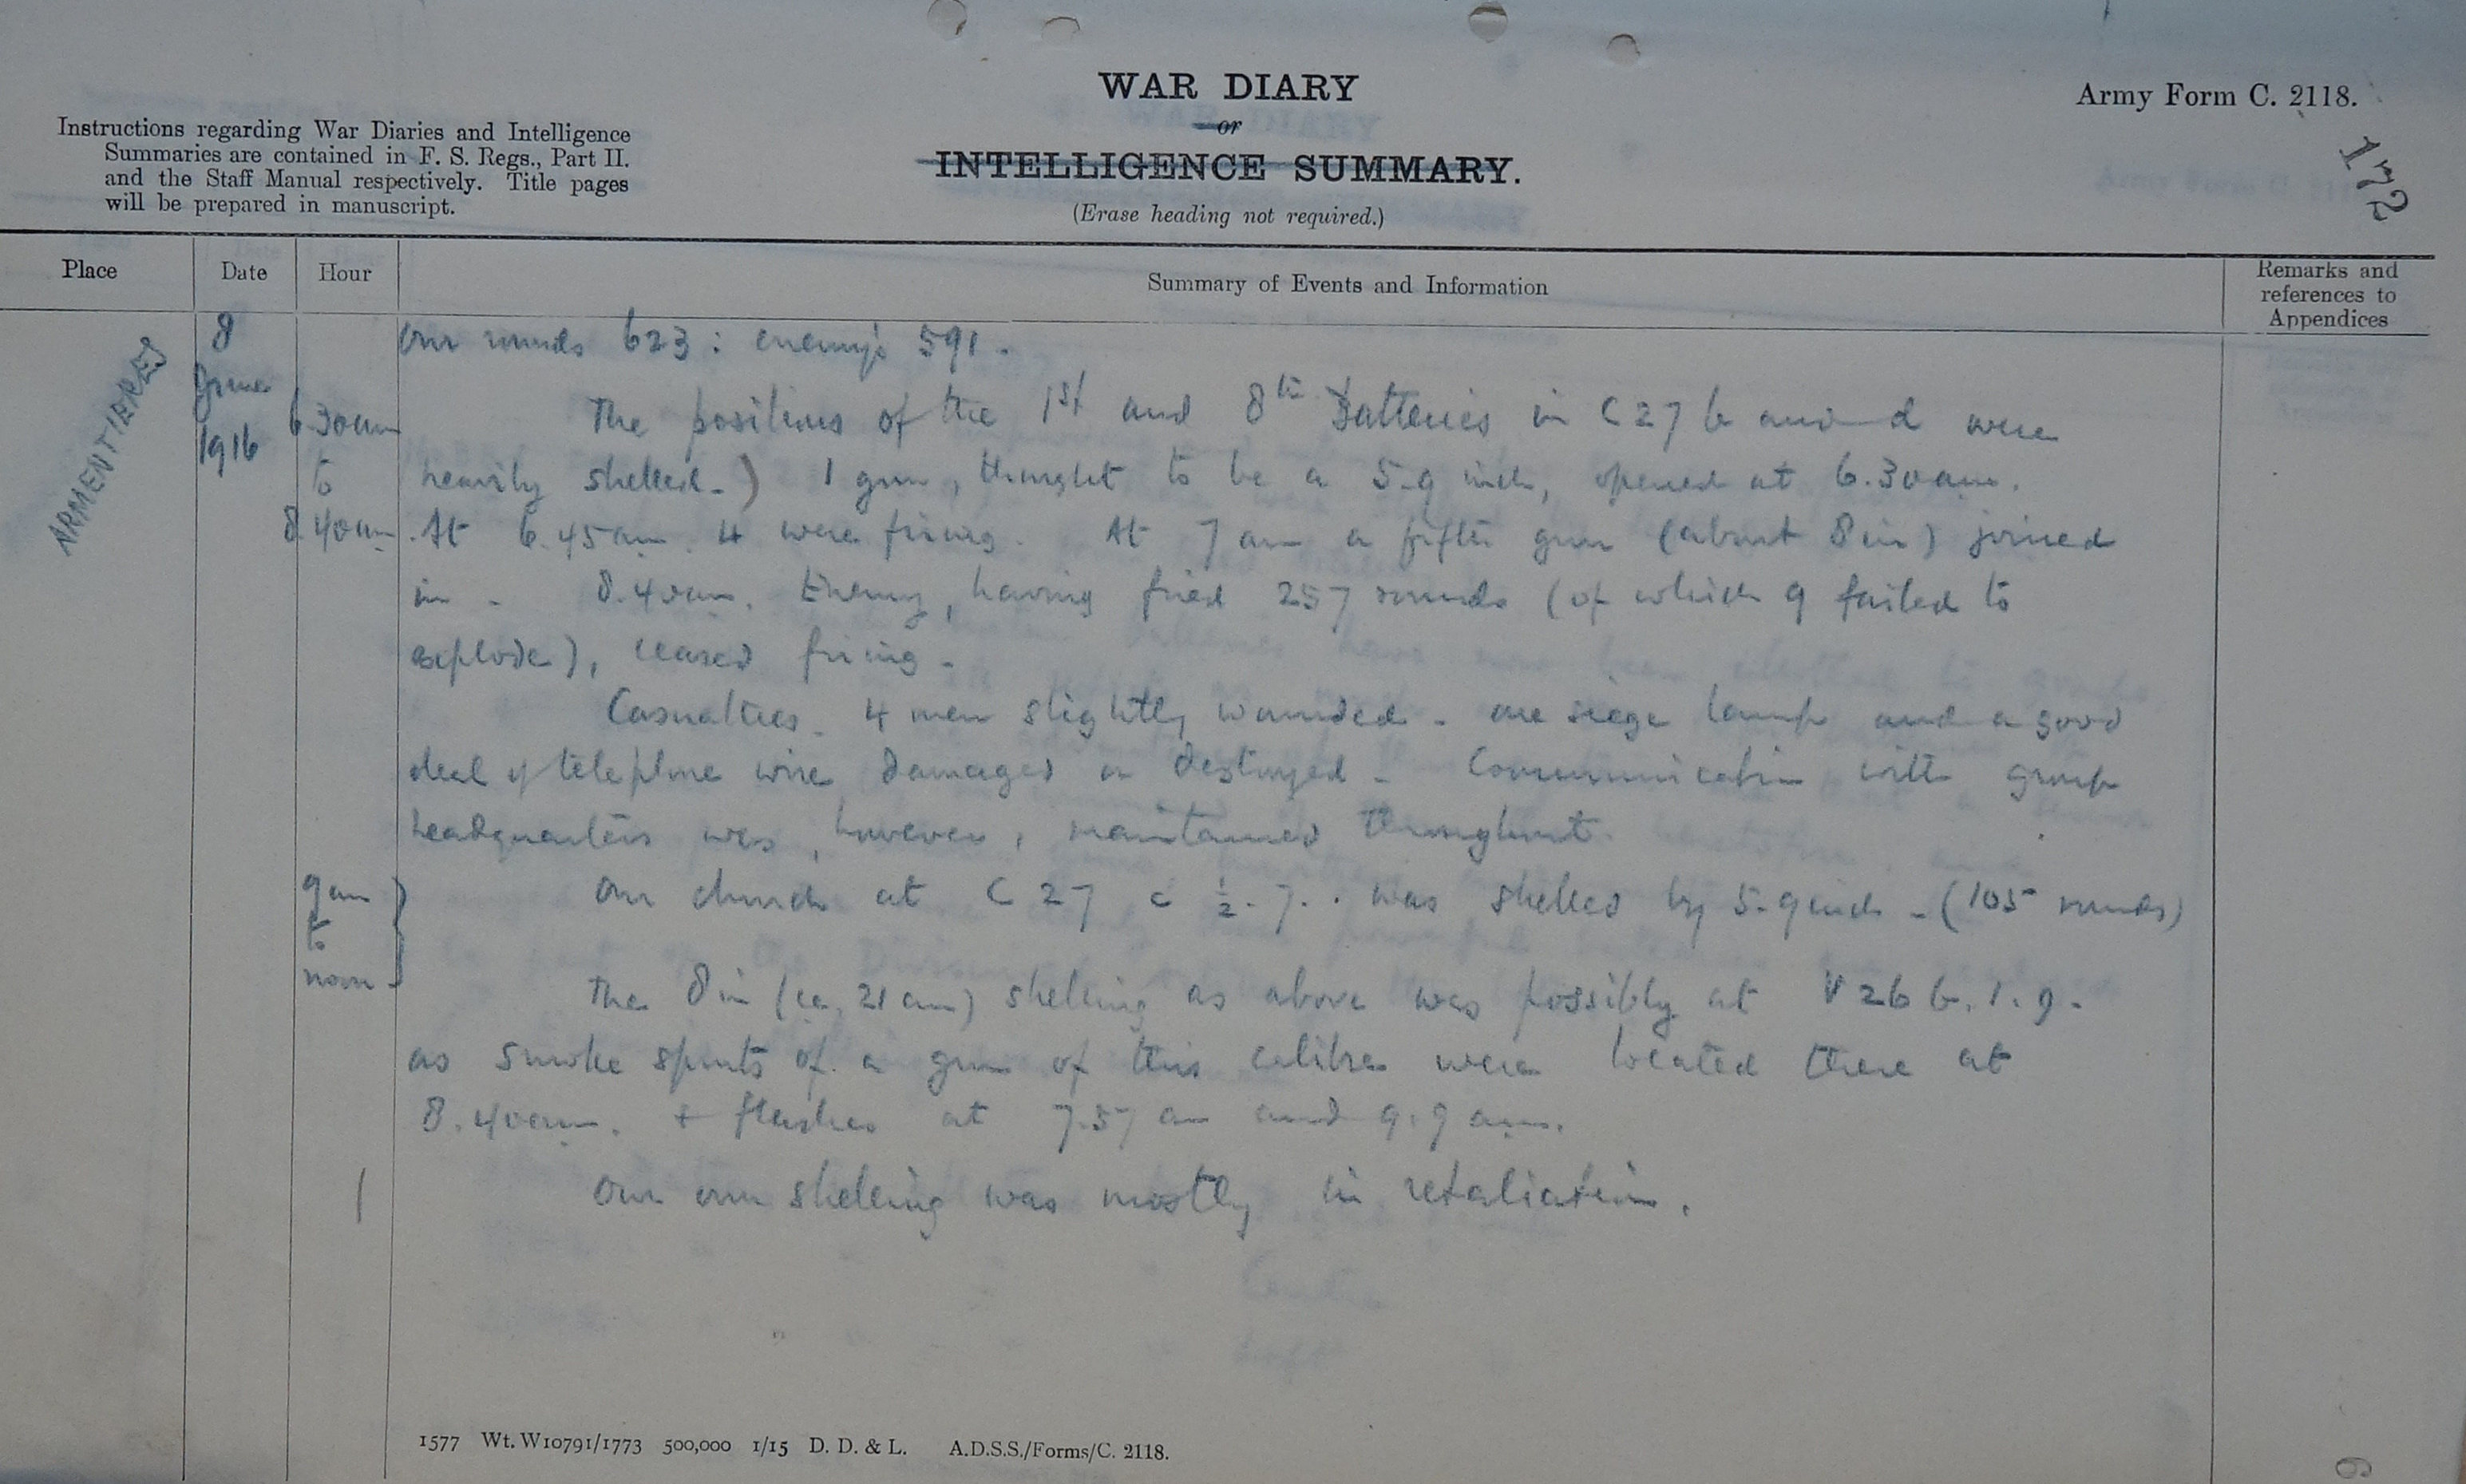 WAR DIARY
or
INTELLIGENCE SUMMARY.
(Erase heading not required.)
Army Form C. 2118.
172
Instructions regarding War Diaries and Intelligence
Summaries are contained in F. S. Regs., Part II.
and the Staff Manual respectively. Title pages
will be prepared in manuscript.
Place
Date
Hour
Summary of Events and Information
Remarks and
references to
Appendices
ARMENTIERES
8
June
1916
Our rounds 623 : enemy's 591.
6.30am
to
8.40am
The positions of the 1st and 8th Batteries in C 27 b and d were
heavily shelled.) 1 gun, thought to be a 5.9 inch, opened at 6.30am.
At 6.45am. 4 were firing. At 7 am a fifth gun (about 8 in) joined
in - 8.40am. Enemy, having fired 257 rounds (of which 9 failed to
explode), ceased firing -
Casualties. 4 men slightly wounded - one siege lamp and a good
deal of telephone wire damaged or destroyed - Communication with group
headquarters was, however, maintained throughout.
9am
to
noon
church at C 27 c ½.7.. was shelled by 5.9 inch - (105 rounds)
The 8 in (ca. 21 cm) shelling as above was possibly at V 26 b. 1. 9.
as smoke spurts of a gun of this calibre were located there at
8.40am. + flashes at 7.57 am and 9.9 am.
Our own shelling was mostly in retaliation.
1577 Wt. W10791/1773 500,000 1/15 D. D. & L. A.D.S.S./Forms/C. 2118.